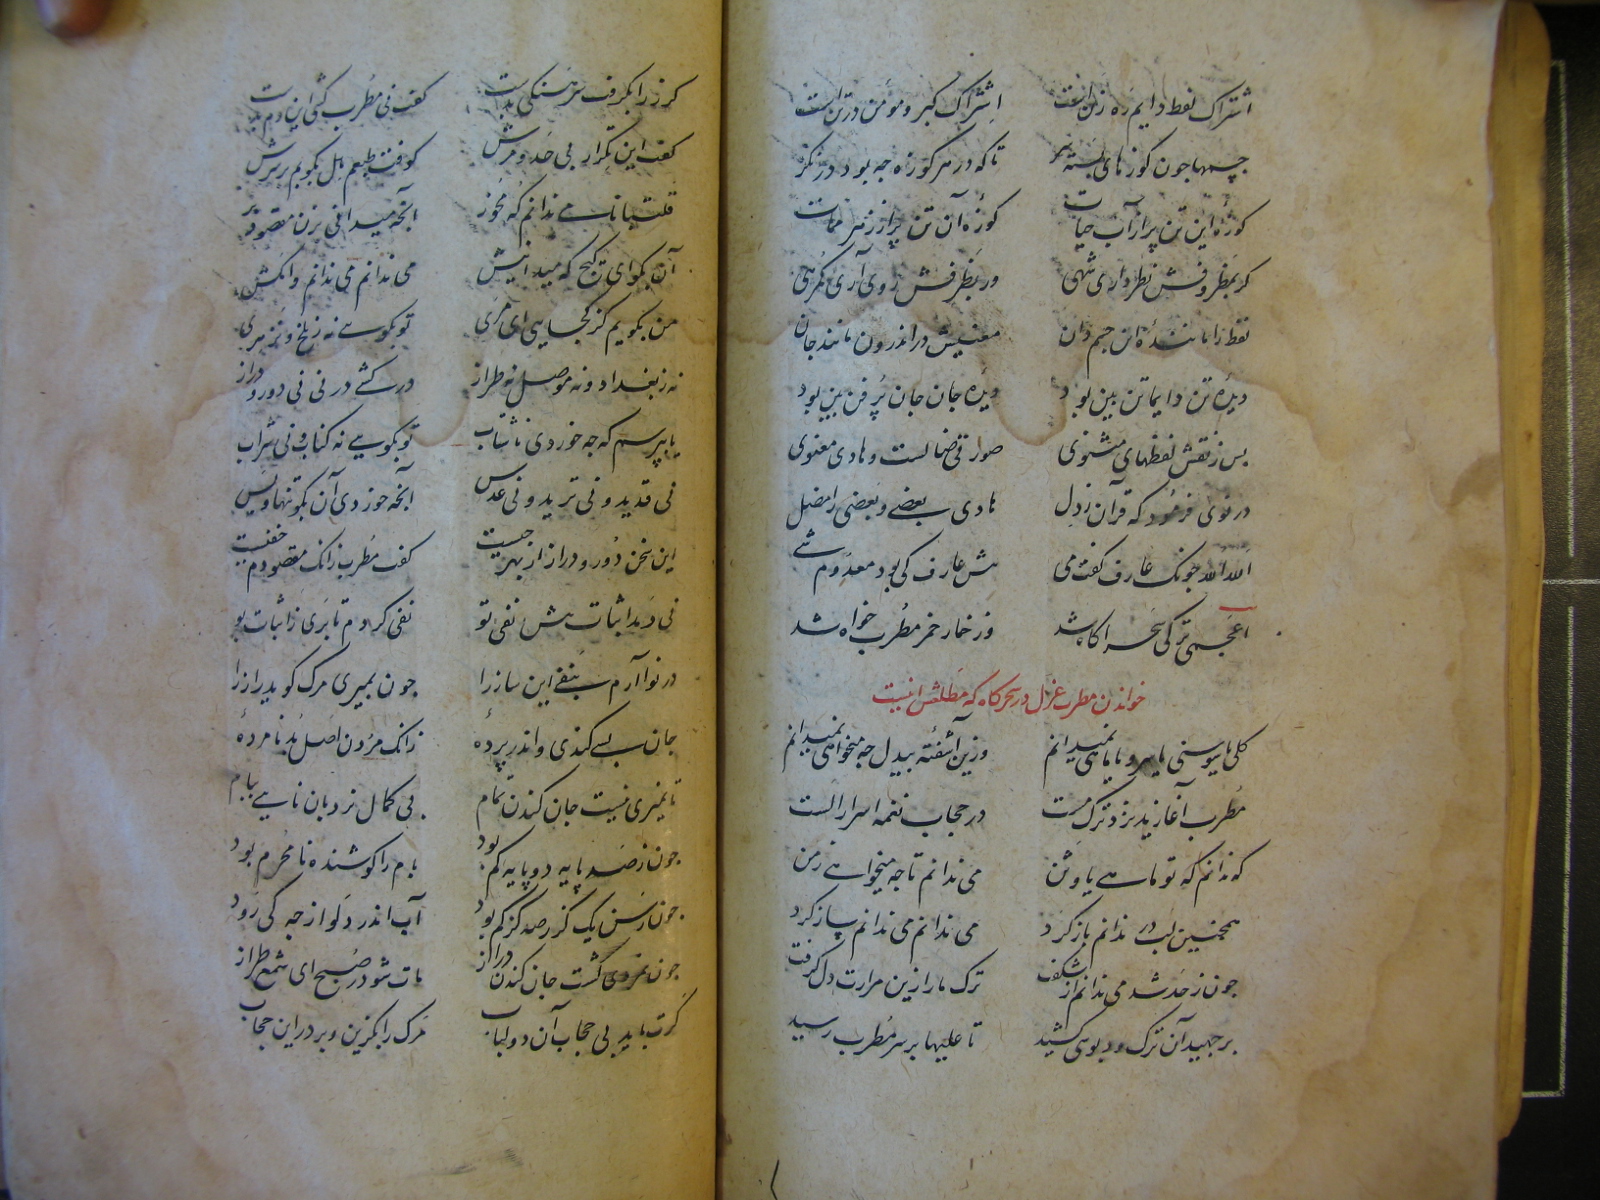 اشتراک لفظ دایم ره زنست اشتراک کبر و مؤمن در تنست
جسمها جون کوزهای بسته سر تا که در هر کوزه جه بود در نکر
کوزهٔ این تن پر از آب حیات کوزه آن تن پر از زهر ممات
کر بمظروفش نظر داری شهی ور بظرفش روی آری کمرهی
لفظ را مانندهٔ این جسم دان معنیش در اندرون مانند جان
دیدهٔ تن دایما تن بین بود دیدهٔ جان جان پر فن بین بود
بس ز نقش لفظهای مثنوی صورتی ضالست و هادی معنوی
در نوی فرمود که قرآن ز دل هادی بعضی و بعضی را مضل
الله الله جونک عارف کفت می پیش عارف کی بود معدوم شی
اعجمی ترکی سحر آکاه شد وز خمار خمر مطرب خواه شد
خواندن مطرب غزل در سحرکاه که مطلعش اینست
کلی یا سوسنی یا سرو یا ماهی نمیدانم وزین آشفته بیدل جه میخواهی نمیدانم
مطرب آغازید نزد ترک مست در حجاب نغمه اسرار الست
که ندانم که تو ماهی یا وثن می ندانم تا جه میخواهی ز من
همجنین لب در ندانم باز کرد می ندانم می ندانم ساز کرد
جون ز حد شد می ندانم از شکفت ترک ما را زین مرارت دل کرفت
برجهید آن ترک و دبوسی کشید تا علیها بر سر مطرب رسید
کرز را بکرفت سرهنکی بدست کفت نی مطرب کشی این دم بدست
کفت این تکرار بی حد و مرش کوفت طبعم هل بکوبم بر سرش
قلتبانا می ندانم که مخور آنجه میدانی بزن مقصود بر
آن بکو ای کیج که میدانیش می ندانم می ندانم وامکش
من بکویم کز کجایی ای مری تو بکویی نه ز بلخ و نز هری
نه ز بغداد و نه موصل نه طراز در کشی در نی نی دور و دراز
یا ببرسم که جه خوردی ناشتاب تو بکویی نه کباب و نی شراب
نی قدید و نی ترید و نی عدس آنجه خوردی آن بکو تنها و بس
این سخن دور و دراز از بهر جیست کفت مطرب زانک مقصودم خفیست
می رمد اثبات پیش نفی تو نفی کردم تا بری ز اثبات بو
در نوا آرم بنفی این ساز را جون بمیری مرک کوید راز را
جان بسی کندی و اندر پرده زانک مردن اصل بد نامردهٔ
تا نمیری نیست جان کندن تمام بی کمال نردبان نایی ببام
جون ز صد پایه دو پایه کم بود بام را کوشنده نامحرم بود
جون رسن یک کز ز صد کز کم بود آب اندر دلو از جه کی رود
جون نمردی کشت جان کندن دراز مات شو در صبح ای شمع طراز
کرت باید بی حجاب آن دو لباب مرک را بکزین و بر در این حجاب